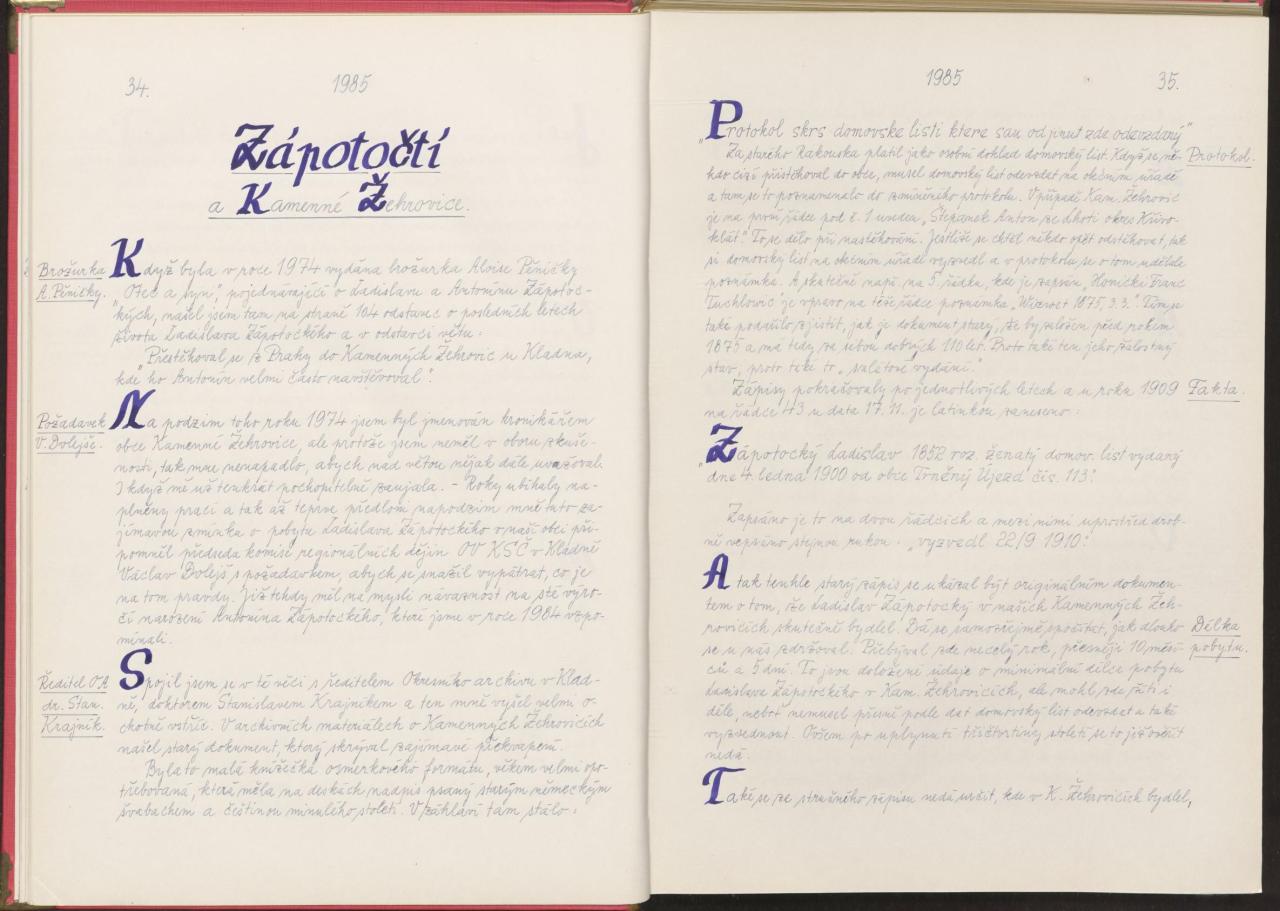 34.
1985
Zápotočtí
a Kamenné Žehrovice.
Brožurka
A. Pěničky.
Když byla v roce 1974 vydána brožurka Aloise Pěničky
„Otec a syn", pojednávající o Ladislavu a Antonínu Zápotoc-
kých, našel jsem tam na straně 104 odstavec o posledních letech
života Ladislava Zápotockého a v odstavci větu:
„Přestěhoval se z Prahy do Kamenných Žehrovic u Kladna,
kde ho Antonín velmi často navštěvoval".
Požadavek
V. Dolejše.
Na podzim toho roku 1974 jsem byl jmenován kronikářem
obce Kamenné Žehrovice, ale protože jsem neměl v oboru zkuše-
nosti, tak mne nenapadlo, abych nad větou nějak dále uvažoval.
I když mě už tenkrát pochopitelně zaujala. - Roky ubíhaly na-
plněny prací a tak až teprve předloni napodzim mně tuto za-
jímavou zmínku o pobytu Ladislava Zápotockého v naší obci při-
pomněl předseda komise regionálních dějin OV KSČ v Kladně
Václav Dolejš s požadavkem, abych se snažil vypátrat, co je
na tom pravdy. Již tehdy měl na mysli návaznost na sté výro-
čí narození Antonína Zápotockého, které jsme v roce 1984 vzpo-
mínali.
Ředitel OA
dr. Stan.
Krajník.
Spojil jsem se v té věci s ředitelem Okresního archivu v Klad-
ně, doktorem Stanislavem Krajníkem a ten mně vyšel velmi o-
chotně vstříc. V archivních materiálech o Kamenných Žehrovicích
našel starý dokument, který skrýval zajímavé překvapení.
Byla to malá knížečka osmerkového formátu, věkem velmi opo-
třebovaná, která měla na deskách nadpis psaný starým německým
švabachem a češtinou minulého století. V záhlaví tam stálo:
1985
35.
„Protokol skrs domovske listi ktere sau odjmut zde odevzdaný"
Protokol.
Za starého Rakouska platil jako osobní doklad domovský list. Když se ně-
kdo cizí přistěhoval do obce, musel domovský list odevzdat na obecním úřadě
a tam se to poznamenalo do zmíněného protokolu. V případě Kam. Žehrovic
je na první řádce pod č. 1 uveden „Štepanek Anton ze Lhoti okres Křivo-
klát." To se dělo při nastěhování. Jestliže se chtěl někdo opět odstěhovat, tak
si domovský list na obecním úřadě vyzvedl a v protokolu se o tom udělala
poznámka. A skutečně např. na 5. řádku, kde je zapsán „Konička Franc
Tuchlowic" je vpravo na téže řádce poznámka „Wizwet 1875, 3.3." Tím se
také podařilo zjistit, jak je dokument starý, že byl založen před rokem
1875 a má tedy za sebou dobrých 110 let. Proto také ten jeho žalostný
stav, proto také to „valétové vydání."
Fakta.
Zápisy pokračovaly po jednotlivých letech a u roku 1909
na řádce 43 u data 17. 11. je latinkou zaneseno:
„Zápotocký Ladislav 1852 roz. ženatý domov. list vydaný
dne 4. ledna 1900 od obce Trněný Újezd čís. 113."
Zapsáno je to na dvou řádcích a mezi nimi uprostřed drob-
ně vepsáno stejnou rukou: „vyzvedl 22/9 1910."
A tak tenhle starý zápis se ukázal být originálním dokumen-
tem o tom, že Ladislav Zápotocký v našich Kamenných Žeh-
rovicích skutečně bydlel. Dá se samozřejmě spočítat, jak dlouho
Délka
pobytu.
se u nás zdržoval. Přebýval zde necelý rok, přesněji 10 měsí-
ců a 5 dní. To jsou doložené údaje o minimální délce pobytu
Ladislava Zápotockého v Kam. Žehrovicích, ale mohl zde žíti i
déle, neboť nemusel přesně podle dat domovský list odevzdat a také
vyzvednout. Ovšem po uplynutí tříčtvrtiny století se to již ověřit
nedá.
Také se ze stručného zápisu nedá určit, kde v K. Žehrovicích bydlel,